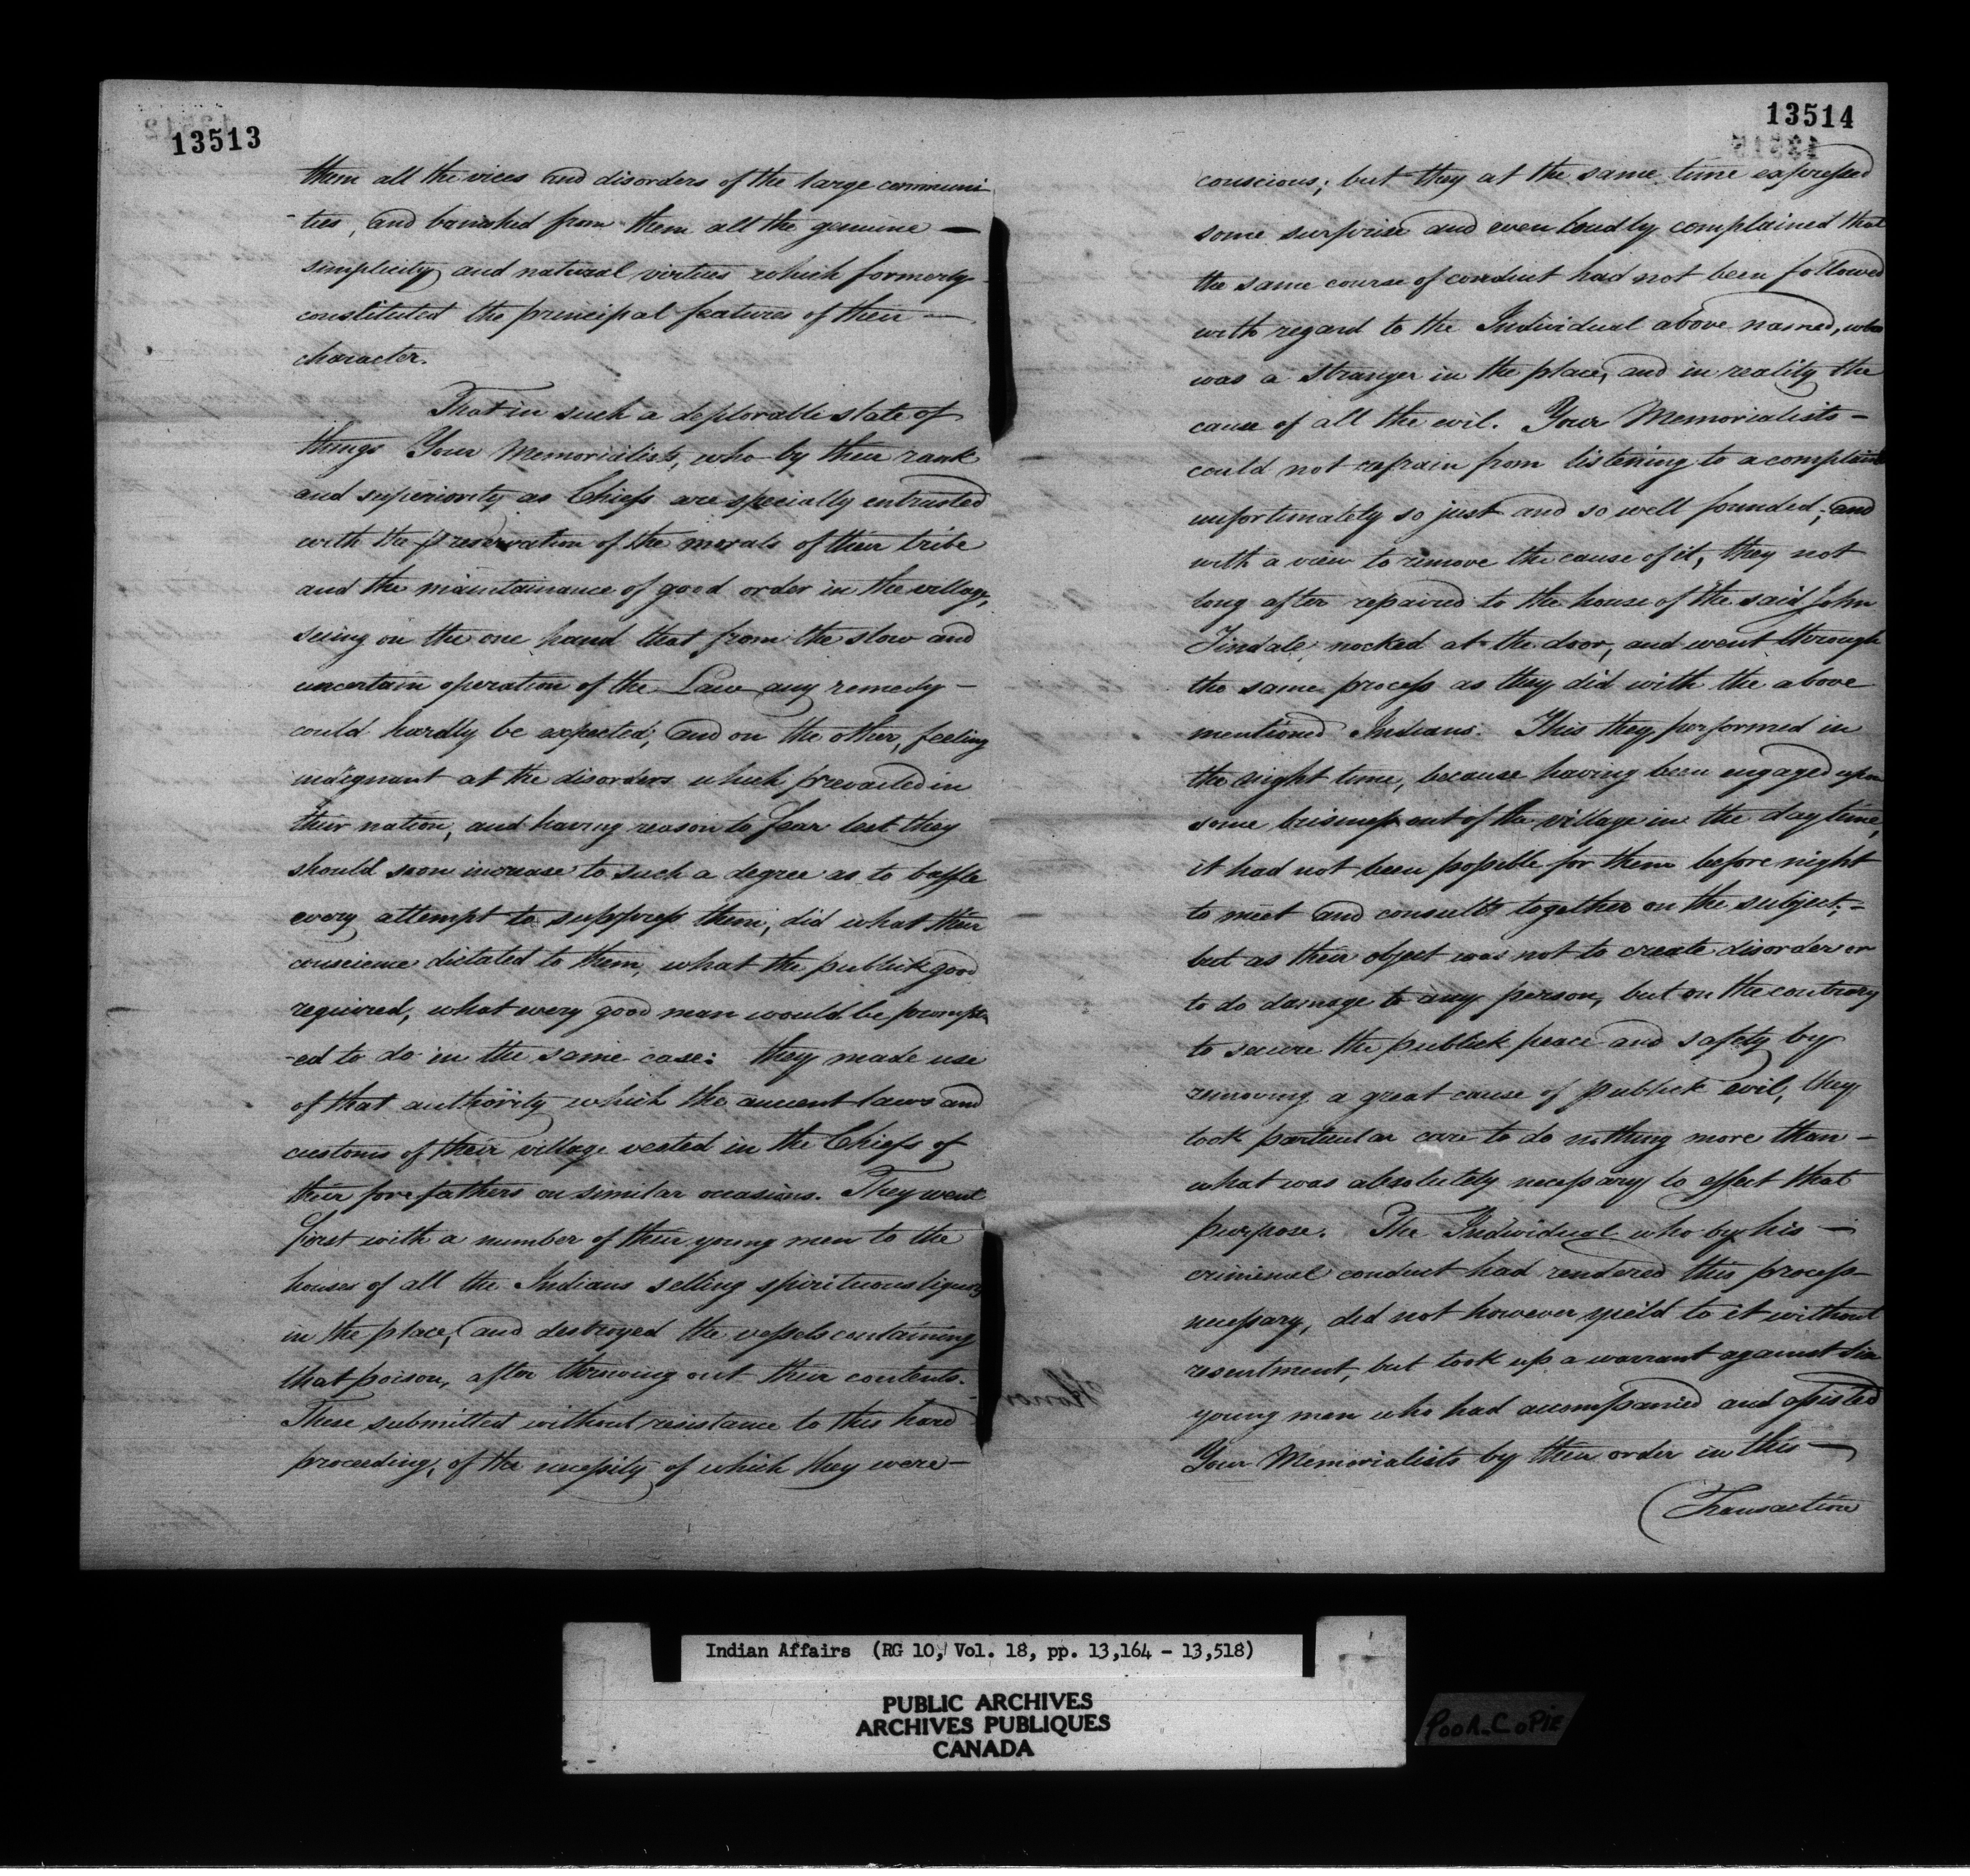 13513
them all the vices and disorders of the large communi
-ties, and banished from them all the genuine —
simplicity and natural virtues which formerly
constituted the principal features of their —
character.
That in such a deplorable state of
things Your Memorialists, who by their rank
and superiority as Chiefs are specially entrusted
with the preservation of the morals of their tribe
and the maintainance of good order in the village,
seeing on the one hand that from the slow and
uncertain operation of the Law any remedy —
could hardly be expected; and on the other, feeling
indignant at the disorders which prevailed in
their nation, and having reason to fear lest they
should soon increase to such a degree as to baffle
every attempt to suppress them, did what their
conscience dictated to them, what the publick good
required, what every good man would be prompt
-ed to do in the same case: they made use
of that authority which the ancient laws and
customs of their village vested in the Chiefs of
their forefathers on similar occasions. They went
first with a number of their young men to the
houses of all the Indians selling spirituous liquors
in the place, and destroyed the vessels containing
that poison, after throwing out their contents.
These submitted without resistance to this hard
proceeding, of the necessity of which they were —
13514
conscious; but they at the same time expressed
some surprise and even loudly complained that
the same course of conduct had not been followed
with regard to the Individual above named, who
was a stranger in the place, and in reality the
cause of all the evil. Your Memorialists —
could not refrain from listening to a complaint
unfortunately so just and so well founded; and
with a view to remove the cause of it, they not
long after repaired to the house of the said John
Tindale, nocked at the door, and went through
the same process as they did with the above
mentioned Indians. This they performed in
the night time, because having been engaged upon
some business out of the village in the day time,
it had not been possible for them before night
to meet and consult together on the subject; —
but as their object was not to create disorder or
to do damage to any person, but on the contrary
to secure the publick peace and safety by
removing a great cause of publick evil, they
took particular care to do nothing more than —
what was absolutely necessary to effect that
purpose. The Individual who by his —
criminal conduct had rendered this process
necessary, did not however yield to it without
resentment, but took up a warrant against six
young men who had accompanied and assisted
Your Memorialists by their order in this —
Transaction
Indian Affairs (RG 10, Vol. 18, pp. 13,164 - 13,518)
PUBLIC ARCHIVES
ARCHIVES PUBLIQUES
CANADA
POOR COPIE